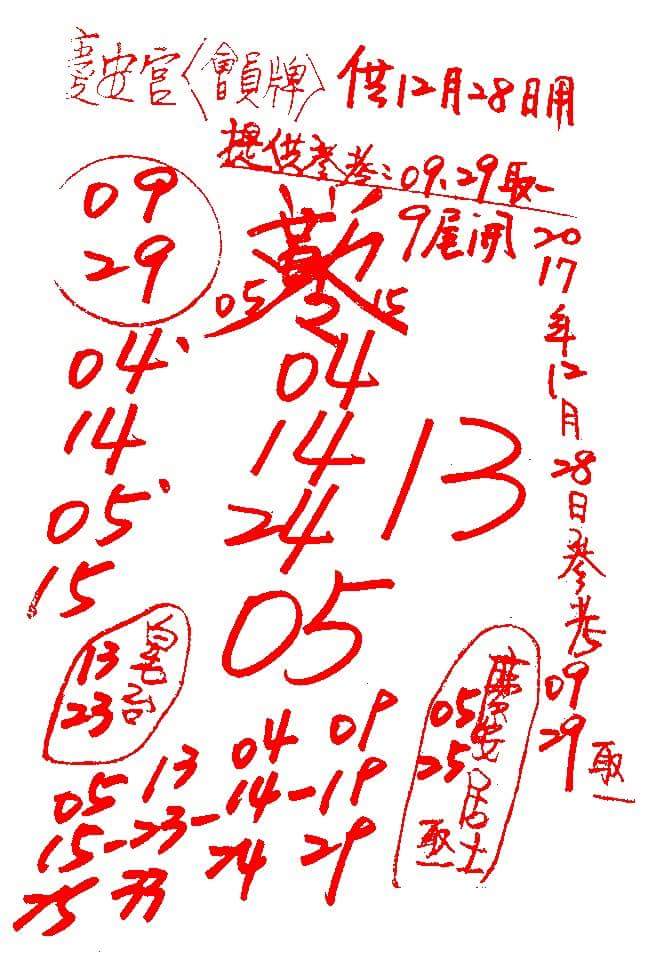 慶安宮〈會員牌〉 供12月28日用
提供參考:09、29取一
9尾開
09
29
05 15
04
14
05
15
04
14
24
05
13
2017年12月28日參考09 29取一
13
23
05 25
居士
取一
05 13 04 09
15-23-14-19
25 33 24 29